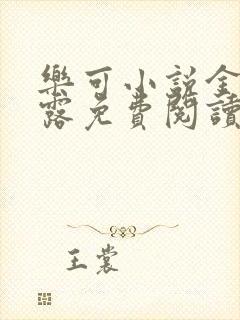 樂可小説全
露免費閱讀
王裳